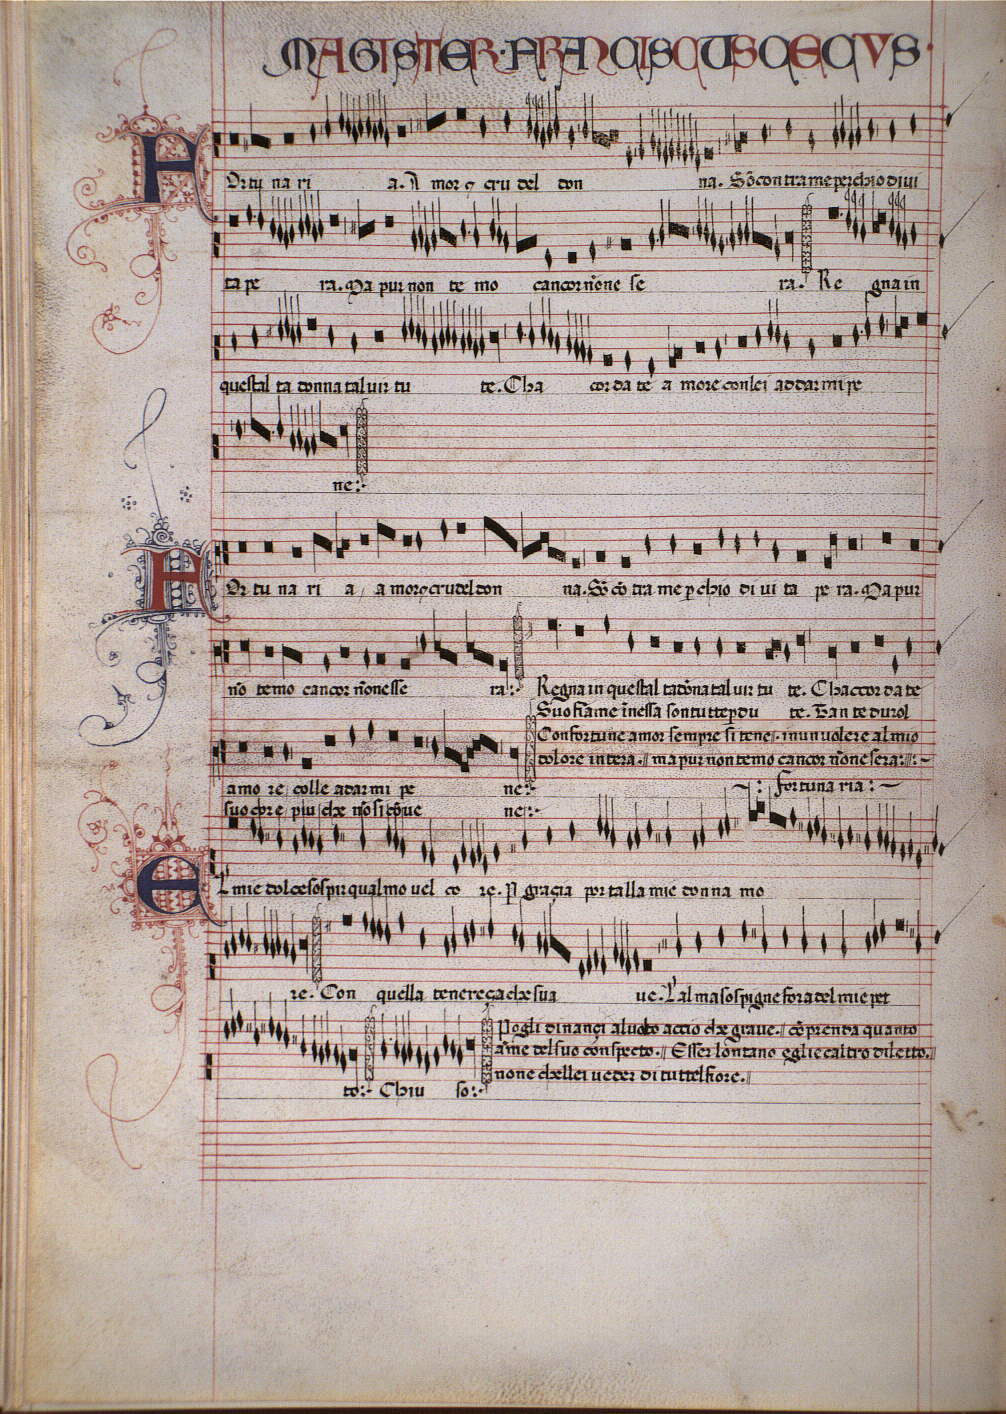 MAGISTER·FRANCISCUS CECVS·
FOrtu na ri a. A mor ꝯ cru del don na. Sõ contra me perchio di ui
ta pe ra. Ma pur non te mo cancor nõne se ra. Re gna in
questal ta donna tal uir tu te. Cha cor da te a more con lei ad dar mi pe
ne:
FOr tu na ri a a mor ꝯ crudel don na. Sõ cõ tra me ꝑ chio di ui ta pe ra. Ma pur
nõ temo cancor nõnesse ra: Regna in questal ta dõna tal uir tu te. Chaccor da te
Suo fiame inessa son tutte ꝑdu te. Fan te du rol
Con fortune amor sempre si tene. in un uolere al mio
dolore intera. ma pur non temo cancor nõne sera:
amo re colle adarmi pe ne: fortuna ria:
suo core piu che nõ si cõue ne:
EL mie dolce sospir qual mo uel co re. P gracia por talla mie donna mo
re. Con quella tenereça che sua ue. Lalma sospigne fora del mie pet
Pogli dinançi al uolto accio che graue. cõprenda quanto
ame del suo conspecto. Esser lontano eglie caltro diletto.
none chellei ueder di tuttel fiore.
to: Chiu so: